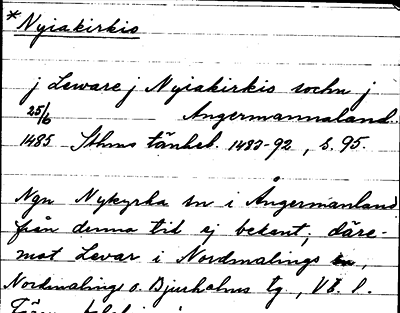 *Nyiakirkio
j Leware j Nyiakirkio sochn j
25/6 Angermannaland.
1485 Sthms tänkeb. 1483-92, s. 95.
Ngn Nykyrka sn i Ångermanland
från denna tid ej bekant; däre-
mot Levar i Nordmalings sn,
Nordmalings o. Bjurholms tg., Vb. l.